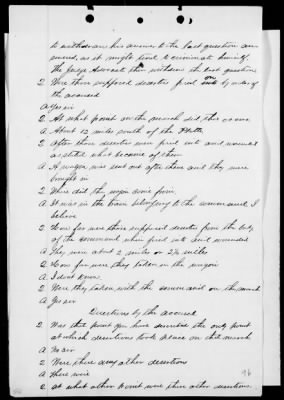 to withdraw his answer to the last question an-
swered, as it might tend to criminate himself.
The Judge Advocate then withdrew the last question
Q Were these supposed deserters fired on by order of
the accused
A Yes sir
Q At what point on the march did this occur
A About 15 miles south of the Platte
Q After these deserters were fired into and wounded
as stated what became of them
A A wagon was sent out after them and they were
brought in
Q Where did the wagon come from
A It was in the train belonging to the command I
believe
Q How far were these supposed deserters from the body
of the command when fired into and wounded
A They were about 2 miles or 2½ miles
Q How far were they taken in the wagon
A I dont know
Q Were they taken with the command on the march
A Yes sir
Questions by the accused
Q Was that point you have described the only point
at which desertions took place on that march
A No sir
Q Were there any other desertions
A There were
Q At what other point were there other desertions
96